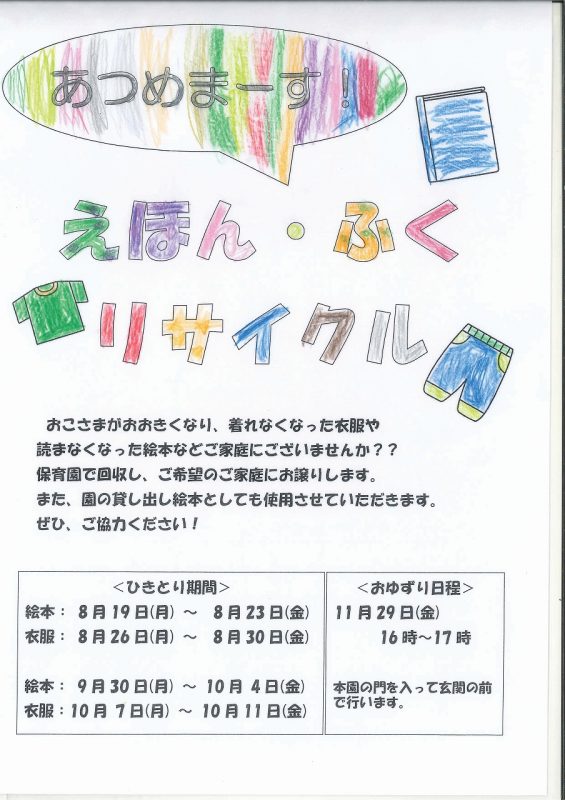 あつめまーす!
えほん・ふく
リサイクル
おこさまがおおきくなり、着れなくなった衣服や
読まなくなった絵本などご家庭にございませんか??
保育園で回収し、ご希望のご家庭にお譲りします。
また、園の貸し出し絵本としても使用させていただきます。
ぜひ、ご協力ください!
<ひきとり期間>
絵本: 8月19日(月) ~ 8月23日(金)
衣服: 8月26日(月) ~ 8月30日(金)
絵本: 9月30日(月) ~ 10月 4日(金)
衣服:10月 7日(月) ~ 10月11日(金)
<おゆずり日程>
11月29日(金)
16時~17時
本園の門を入って玄関の前
で行います。